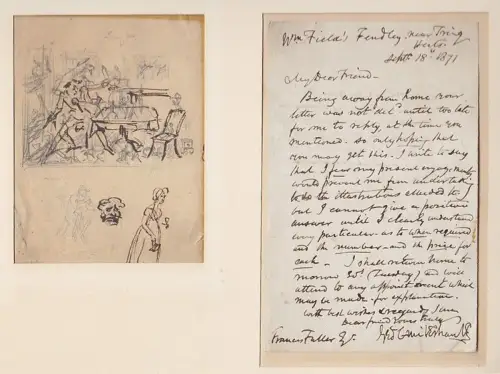 Wm Field's Fendley near Tring
Herts
Septr 18th 1871
My Dear Friend -
Being away from home your
letter was not del'd until too late
for me to reply, at the time you
mentioned. So only hoping that
you may get this. I write to say
that I fear my present engagements
would prevent me from undertaking
to do the illustrations alluded to
but I cannot give a positive
answer until I clearly understand
every particular as to when required
and the number - and the price for
each - I shall return home to
morrow 20th (Tuesday) and will
attend to any appointment which
may be made for explanation.
With best wishes & regards I am
Dear friend Yours truly
Francis Fuller Esqr. Geo Cruikshank